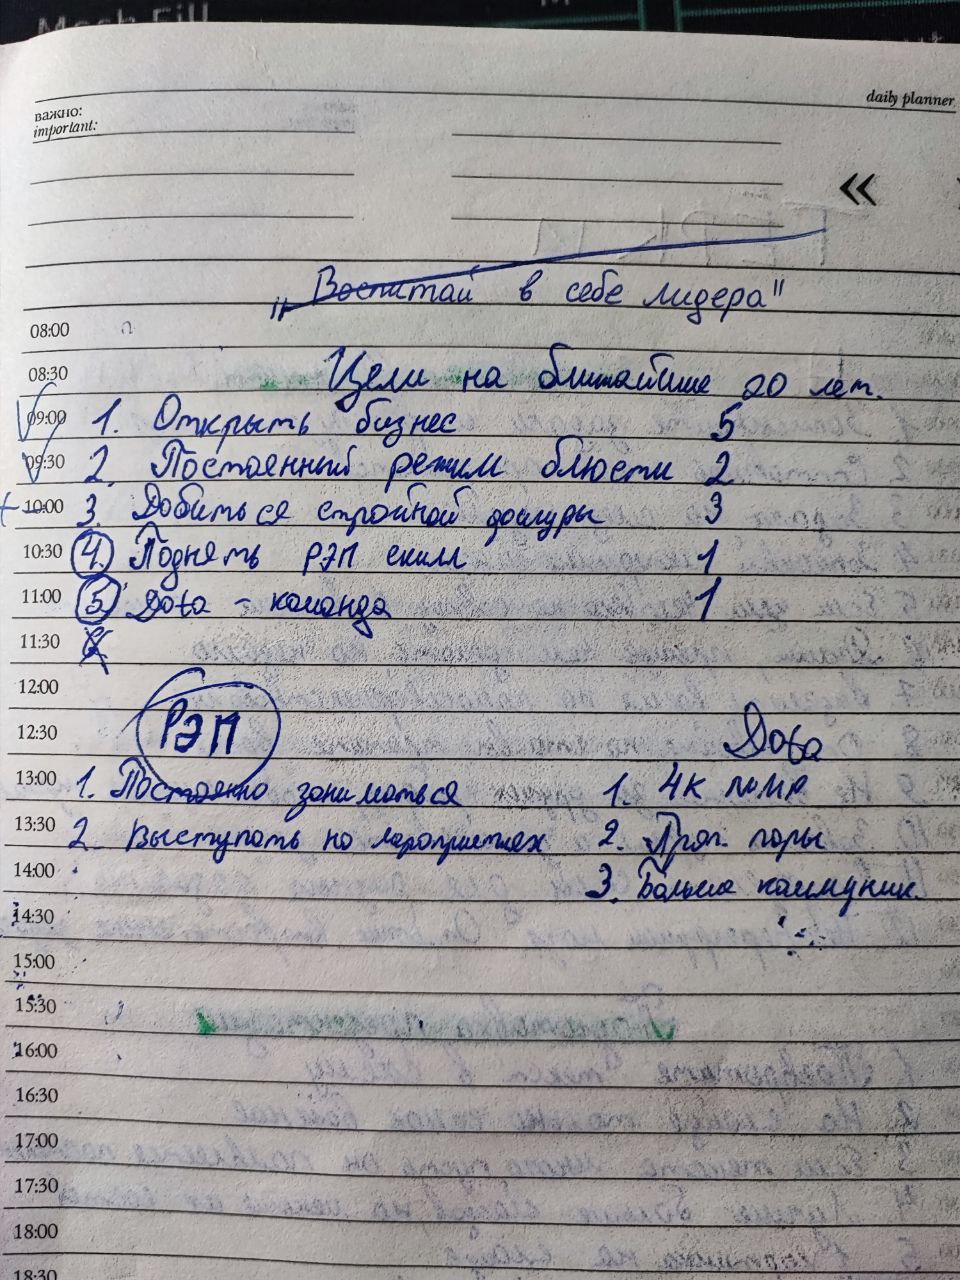 Mesh Fill
важно:
important:
daily planner
«
"Воспитай в себе лидера"
08:00
08:30 Цели на ближайшие 20 лет.
09:00 1. Открыть бизнес 5
09:30 2. Постоянный режим блюсти 2
10:00 3. Добиться стройной 3
10:30 4. Поднять РЭП скилл 1
11:00 5. Dota - команда 1
11:30
12:00
12:30 РЭП Dota
13:00 1. Постоянно заниматься 1. 4к ММР
13:30 2. Выступать на мероприятиях 2.
14:00 3. Больше коммуник.
14:30
15:00
15:30
16:00
16:30
17:00
17:30
18:00
18:30